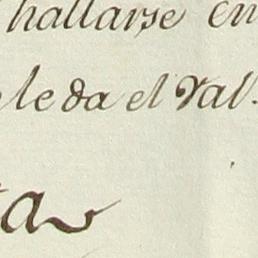 hallarse en
le da el Val.